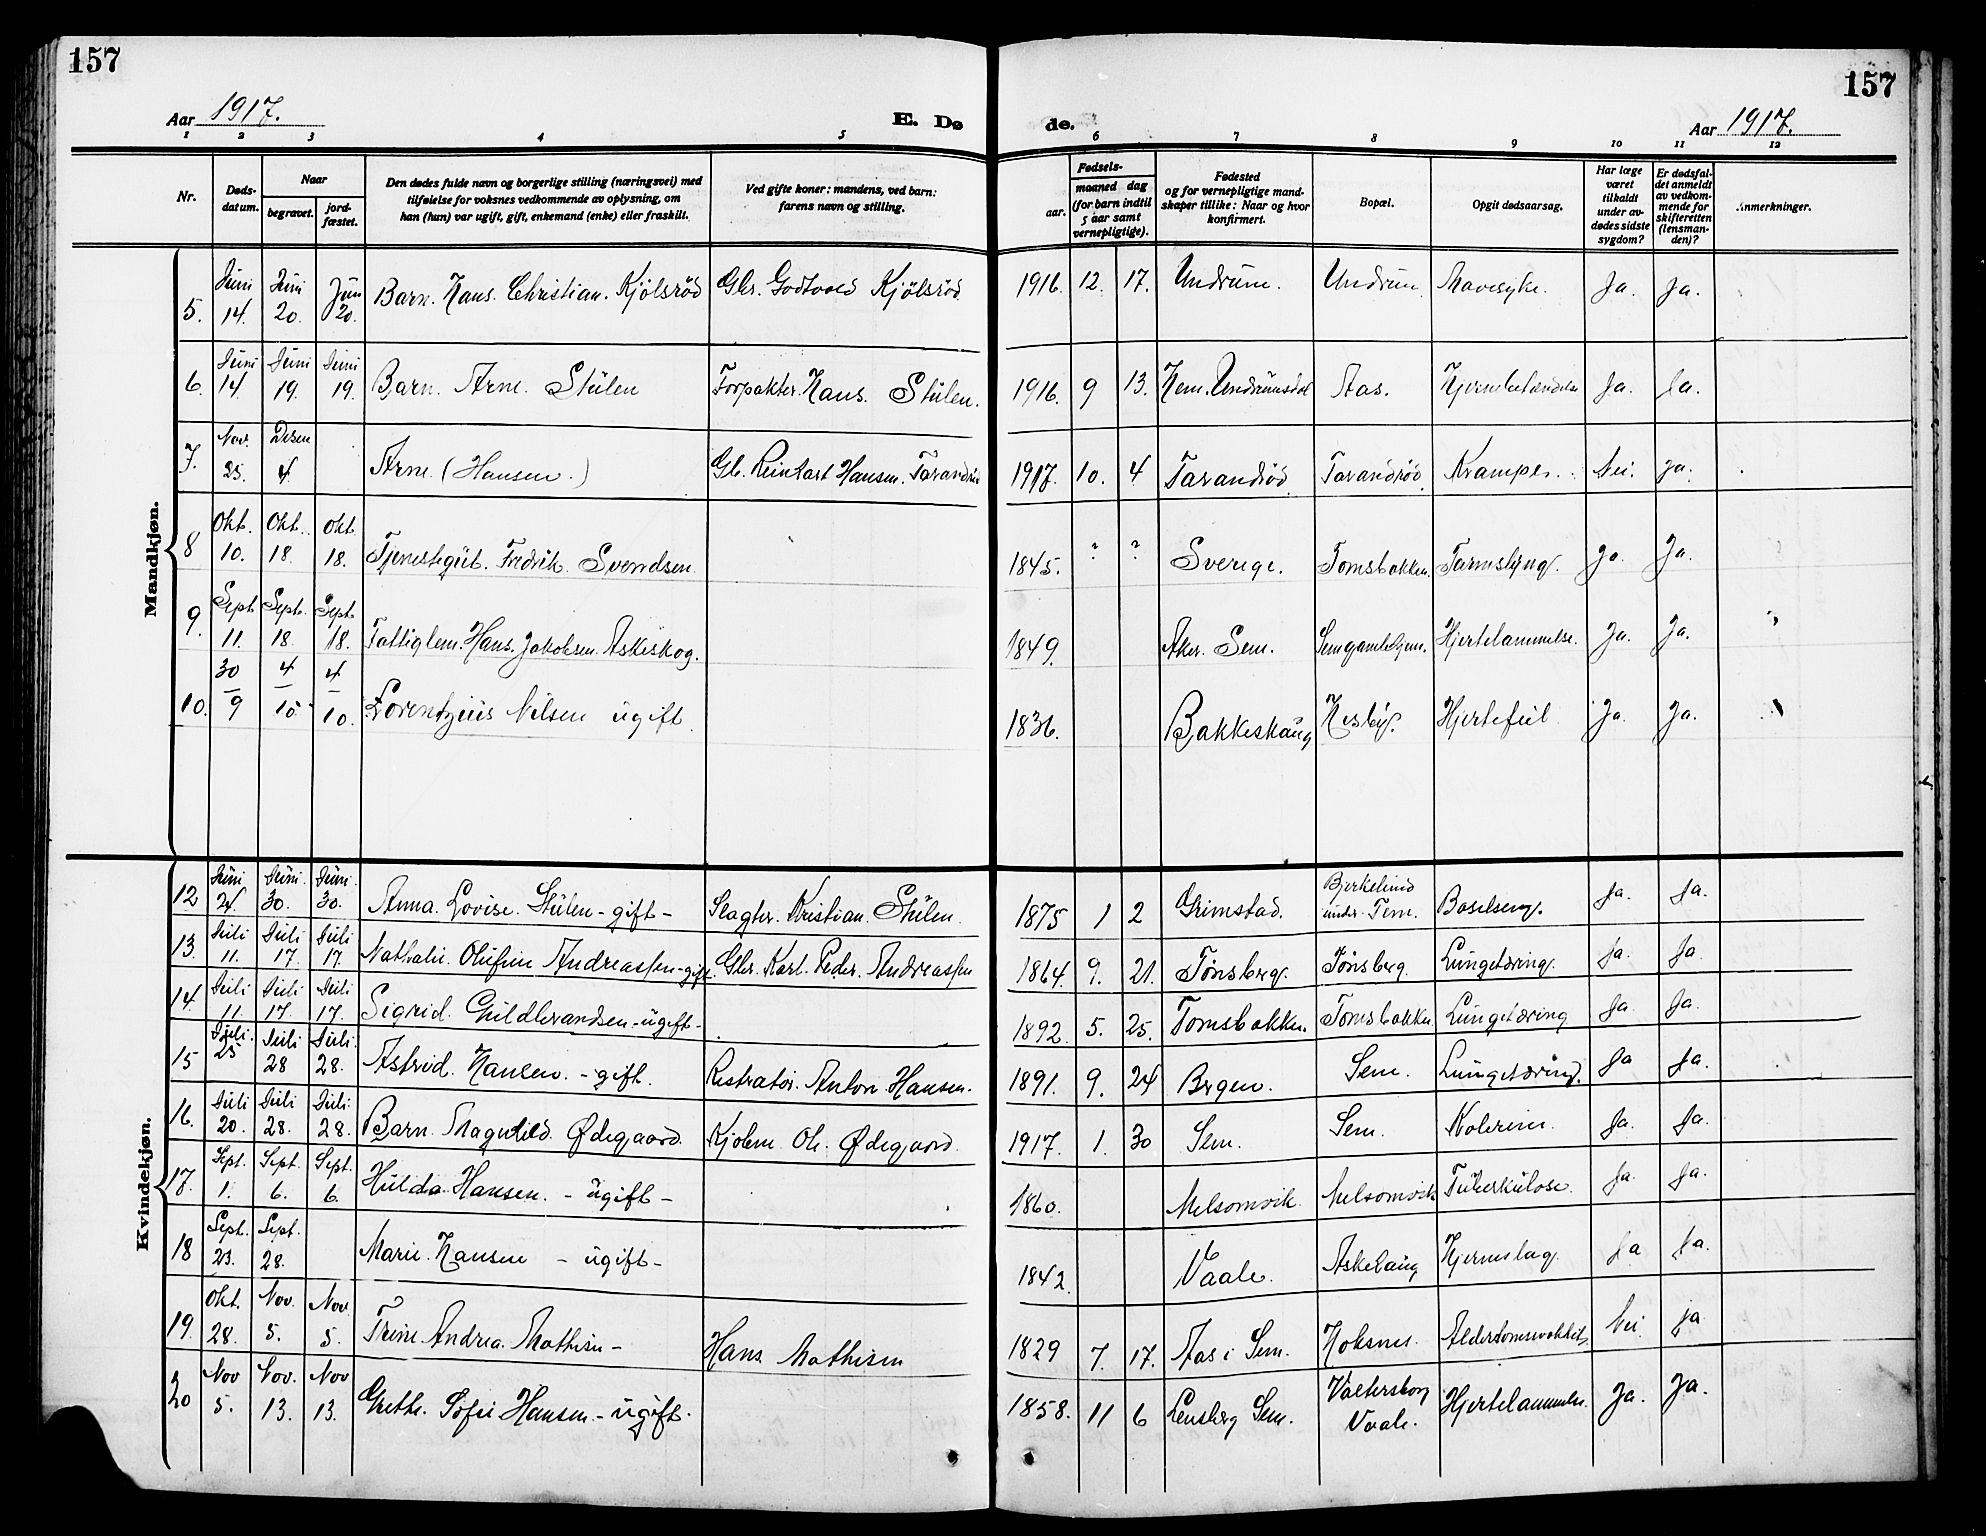 157
157
Aar 1917.
E. Dø
de.
Aar 1917.
1 2 3 4 5 6 7 8 9 10 11 12
Nr.
Døds-
datum.
Naar
begravet.
jord-
fæstet.
Den dødes fulde navn og borgerlige stilling (næringsvei) med
tilføielse for voksnes vedkommende av oplysning, om
han (hun) var ugift, gift, enkemand (enke) eller fraskilt.
Ved gifte koner: mandens, ved barn:
farens navn og stilling.
Fødsels-
aar.
maaned dag
(for barn indtil
5 aar samt
vernepligtige).
Fødested
og for vernepligtige mand-
skaper tillike: Naar og hvor
konfirmert.
Bopæl.
Opgit dødsaarsag.
Har læge
været
tilkaldt
under av-
dødes sidste
sygdom?
Er dødsfal-
det anmeldt
av vedkom-
mende for
skifteretten
(lensman-
den)?
Anmerkninger.
Mandkjøn.
5. Juni 14. Juni 20. Juni 20. Barn. Hans. Christian. Kjölsröd Gbr. Godtvold Kjölsröd. 1916. 12. 17. Undrum. Undrum Mavesyke. Ja. Ja.
6. Juni 14. Juni 19. Juni 19. Barn. Arne. Stulen Forpakter. Hans. Stulen. 1916. 9 13. Hem. Undrumsdal Aas. Hjernebetændelse Ja. Ja.
7. Nov. 25. Desem 4. Arne. (Hansen.) Gb. Reinhart Hansen. Tarandröd 1917. 10. 4 Tarandröd Tarandröd Kramper. Nei. Ja.
8 Okt. 10. Okt. 18. Okt. 18. Tjenestegut. Fredrik. Svendsen. 1845. ? ? Sverige. Tomsbakken. Tarmslyng. Ja. Ja.
9. Sept. 11. Sept. 18. Sept. 18. Fattiglem. Hans. Jakobsen. Askeskog. 1849. Aker. Sem. Semgamlehjem. Hjertelammelse. Ja. Ja.
10. 30/9 4/10 4/10. Lorentzius Nilsen ugift. 1836. Bakkeskaug Hesby. Hjertefeil. Ja. Ja.
Kvindekjøn.
12 Juni 24 Juni 30. Juni 30. Anna. Lovise. Stulen - gift - Slagter. Kristian. Stulen. 1875 1 2 Grimstad. Bjerkelund under Fem. Ja. Ja.
13. Juli 11. Juli 17. Juli 17. Nathalie. Olufine Andreassen - gift. Gbr. Karl. Peder. Andreassen 1864. 9. 21. Tønsberg. Tønsberg. Lungetæring. Ja. Ja
14. Juli 11. Juli 17. Juli 17. Sigrid. Guldbrandsen - ugift - 1892. 5. 25. Tomsbakken. Tomsbakken Lungetæring Ja Ja.
15 Juli. 25 Juli 28 Juli. 28. Astrid. Hansen. - gift. Anton Hansen. 1891. 9. 24 Bergen. Sem. Lungetæring. Ja Ja.
16. Juli 20. Juli 28. Juli 28. Barn. Magnhild. Ødegaard. Ole. Ødegaard. 1917. 1. 30 Sem. Sem. Kolerine. Ja. Ja.
17. Sept. 1. Sept. 6. Sept. 6 Hulda. Hansen. - ugift - 1860. Melsomvik. Melsomvik Tuberkulose. Ja. Ja.
18 Sept. 23. Sept. 28. Marie. Hansen - ugift - 1842. Vaale. Askehaug Hjerneslag. Ja Ja.
19. Okt. 28. Nov. 5. Nov. 5. Trine. Andrea. Mathisen - Hans. Mathisen 1829 7. 17. Aas i Sem. Alderdomssvakhet Nei. ja.
20 Nov 5. Nov. 13. Nov 13. Grethe. Sofie Hansen. - ugift. 1858. 11 6 Lensberg Sem. Valtersborg Vaale. Hjertelammelse. Ja. Ja.